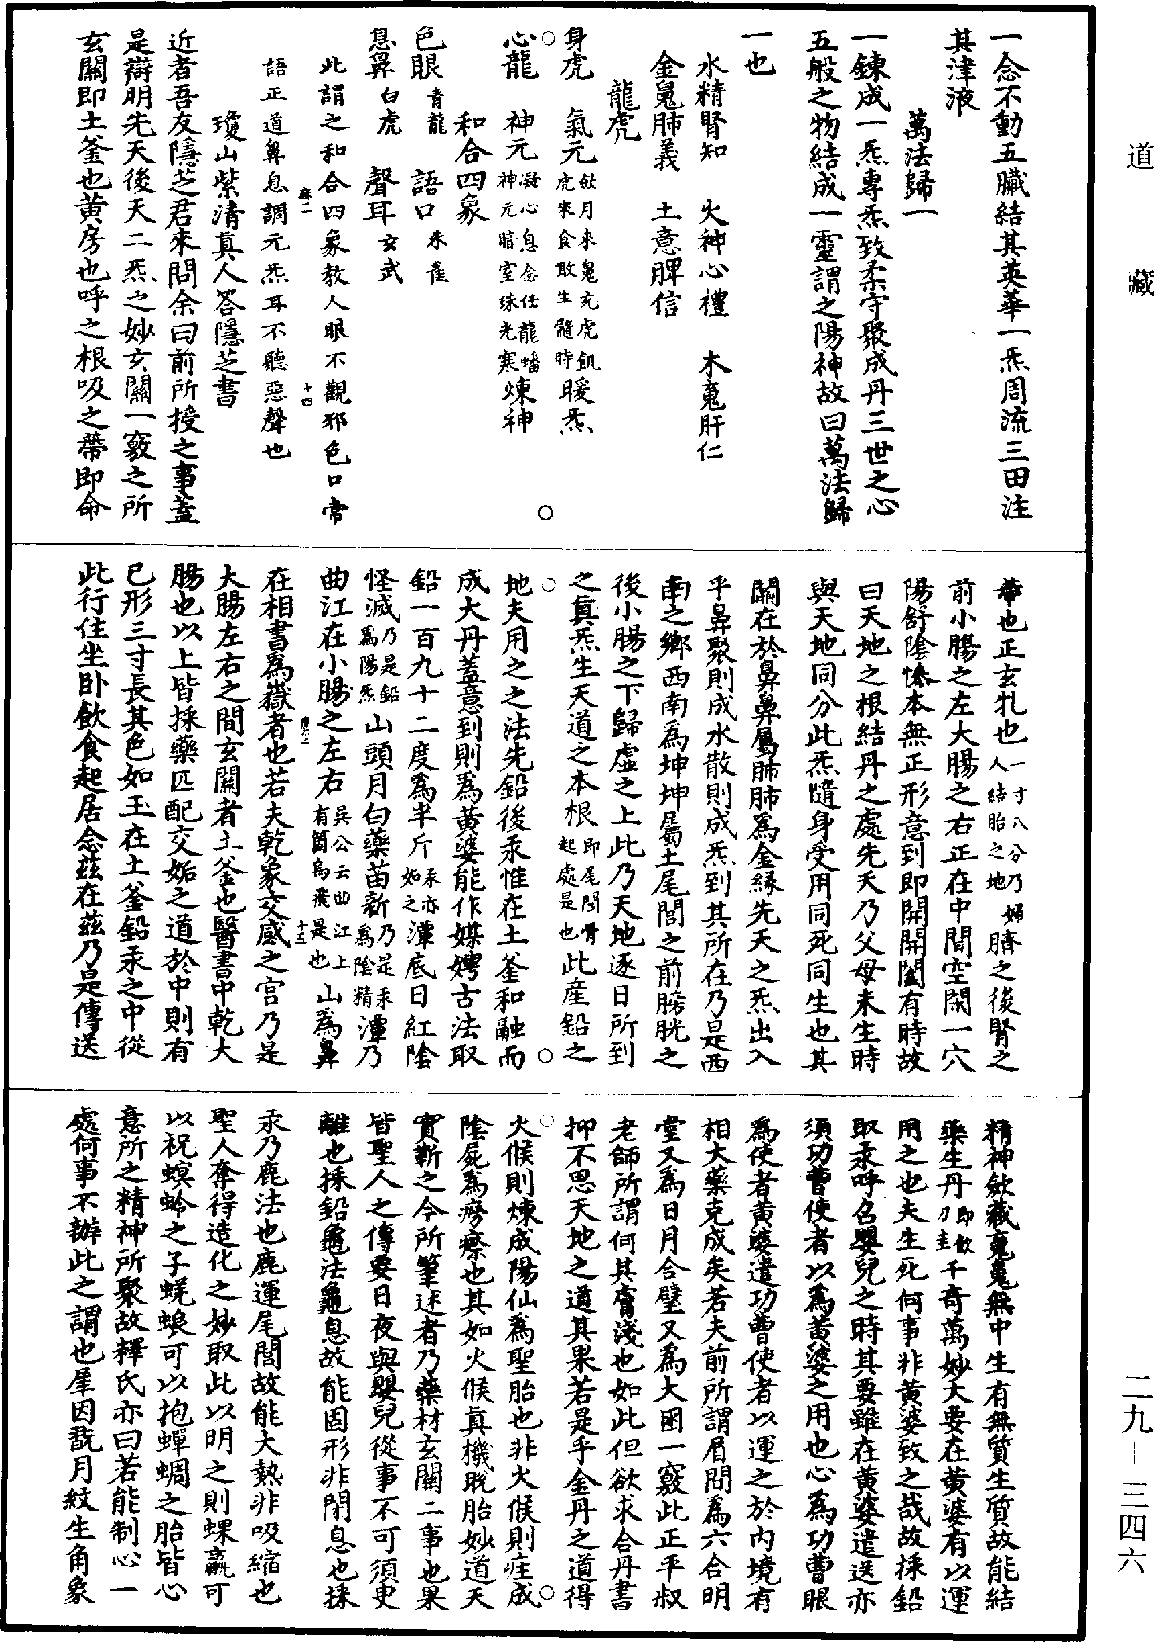 道藏
一念不動五臟結其英華一炁周流三田注
其津液
萬法歸一
一鍊成一炁專炁致柔守聚成丹三世之心
五般之物結成一靈謂之陽神故曰萬法歸
一也
水精腎知 火神心禮 木䰟肝仁
金魄肺義 土意脾信
龍虎
身虎 氣元 飲月來魄充虎飢 虎來食敢生髓時 暖炁
心龍 神元 凝心息念任龍蟠 神元暗室珠光寒 煉神
和合四象
色眼 青龍 語口 朱雀
息鼻 白虎 聲耳 玄武
此謂之和合四象教人眼不觀邪色口常
十四
語正道鼻息調元炁耳不聽惡聲也
瓊山紫清真人答隱芝書
近者吾友隱芝君來問余曰前所授之事蓋
是辯明先天後天二炁之妙玄關一竅之所
玄關即土釜也黃房也呼之根吸之蒂即命
蒂也正玄牝也 一寸八分乃婦人結胎之地 臍之後腎之
前小腸之左大腸之右正在中間空閑一穴
陽舒陰慘本無正形意到即開開闔有時故
曰天地之根結丹之處先天乃父母未生時
與天地同分此炁隨身受用同死同生也其
關在於鼻鼻屬肺肺為金緣先天之炁出入
乎鼻聚則成水散則成炁到其所在乃是西
南之鄉西南為坤坤屬土尾閭之前膀胱之
後小腸之下歸虛之上此乃天地逐日所到
之真炁生天道之本根 即尾閭骨起處是也 此產鉛之
地夫用之之法先鉛後汞惟在土釜和融而
成大丹蓋意到則為黃婆能作媒娉古法取
鉛一百九十二度為半斤 汞亦如之 潭底日紅陰
怪滅 乃是鉛為陽炁 山頭月白藥苗新 乃是汞為陰精 潭乃
曲江在小腸之左右 吳公云曲江上有箇烏飛是也 山為鼻
十五
在相書為嶽者也若夫乾象交感之宮乃是
大腸左右之間玄關者土釜也醫書中乾大
腸也以上皆採藥匹配交姤之道於中則有
已形三寸長其色如玉在土釜鉛汞之中從
此行住坐臥飲食起居念茲在茲乃是傳送
精神斂藏䰟魄無中生有無質生質故能結
藥生丹 即飲刀圭 千奇萬妙大要在黃婆有以運
用之也夫生死何事非黃婆致之哉故採鉛
取汞呼名嬰兒之時其要雖在黃婆遣送亦
須功曹使者以為黃婆之用也心為功曹眼
為使者黃婆遣功曹使者以運之於內境有
相大藥克成矣若夫前所謂眉間為六合明
堂又為日月合璧又為大囷一竅此正平叔
老師所謂何其膚淺也如此但欲求合丹書
抑不思天地之道其果若是乎金丹之道得
火候則煉成陽仙為聖胎也非火候則疰成
陰屍為癆瘵也其如火候真機脫胎妙道天
實靳之今所筆述者乃藥材玄關二事也果
皆聖人之傳要日夜與嬰兒從事不可須臾
離也採鉛龜法龜息故能固形非閉息也採
汞乃鹿法也鹿運尾閭故能大熱非吸縮也
聖人奪得造化之妙取此以明之則蜾蠃可
以祝螟蛉之子蜣蜋可以抱蟬蜩之胎皆心
意所之精神所聚故釋氏亦曰若能制心一
處何事不辦此之謂也犀因翫月紋生角象
二九—三四六